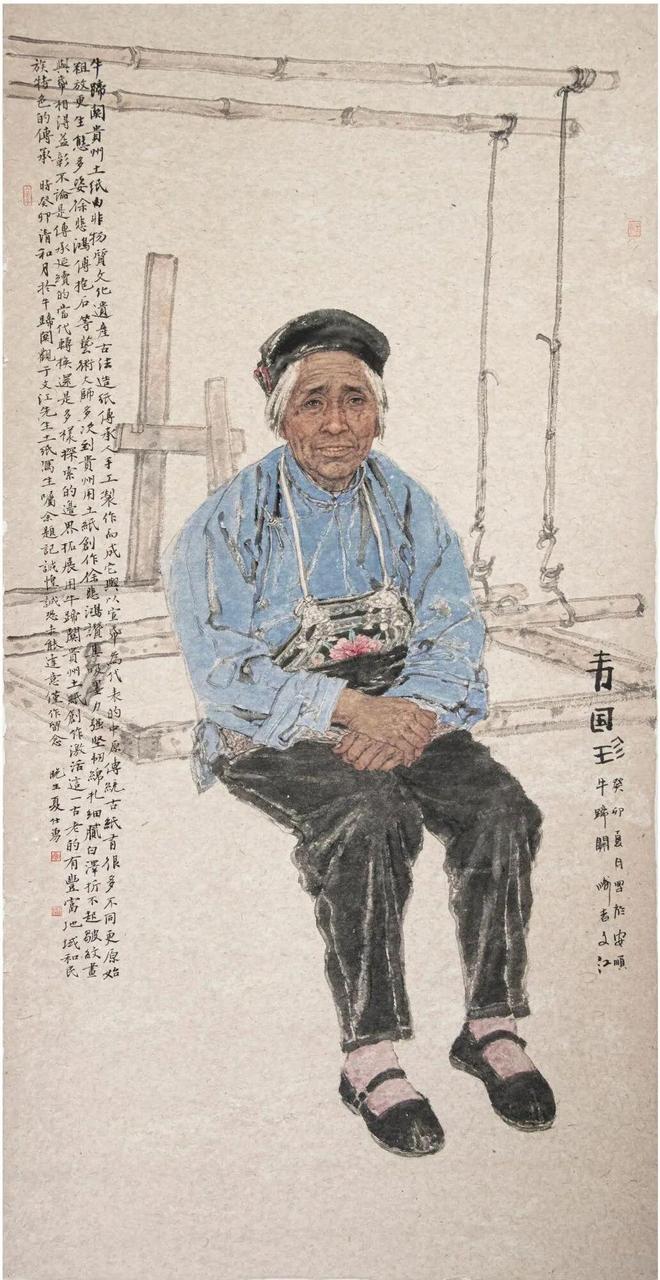 国珍
癸卯夏日寫於安順
牛蹄關 文江
牛蹄關貴州土紙由非物質文化遺産古法造紙傳承人手工製作而成它與以宣帋為代表的中原傳統古紙有很多不同更原始
粗放更生態多姿徐悲鴻傅抱石等藝術大師多次到貴州用土紙創作徐悲鴻讚其吸墨力强堅韌綿扎細膩白澤折不起皺紋畫
與帋相得益彰不論是傳承延續的當代轉换還是多樣探索的邊界拓展用牛蹄關貴州土紙創作激活這一古老的有豐富地域和民
族特色的傳承 時癸卯清和月於牛蹄関觀于文江先生土紙寫生囑余題記誠惶誠恐未能達意僅作留念 晚生夏仕